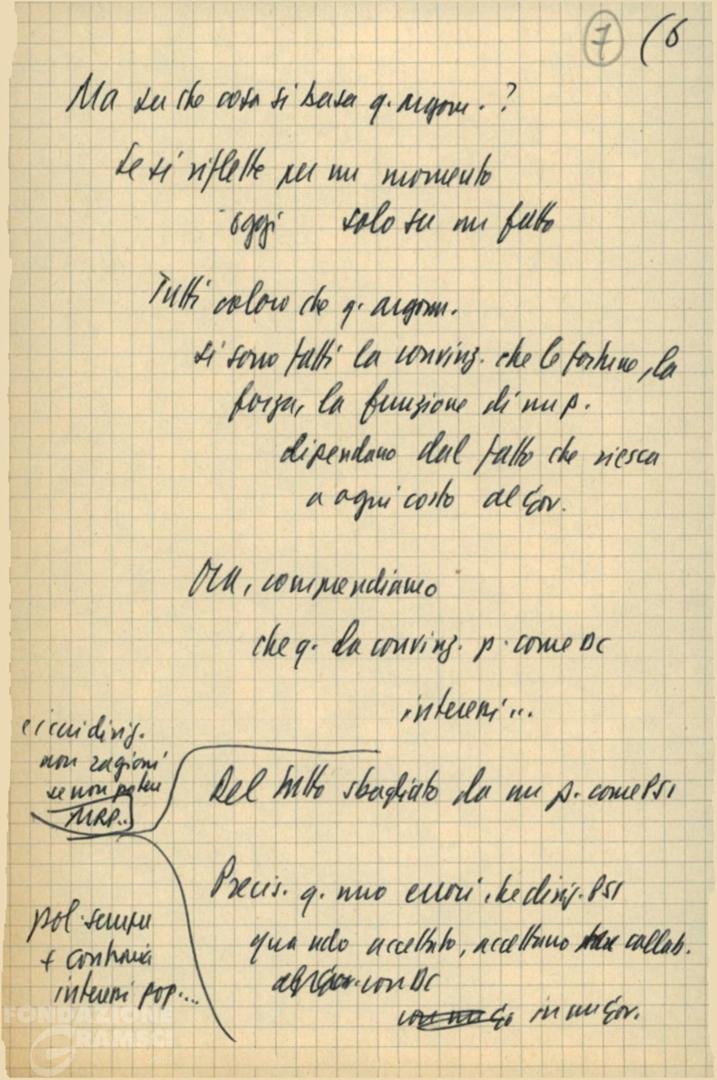 7 (6
Ma su che cosa si basa q. argom. ?
Se si riflette per un momento
oggi solo su un fatto
Tutti coloro che q. argom.
si sono fatti la convinz. che le fortune, la
forza, la funzione di un p.
dipendano dal fatto che riesca
a ogni costo al Gov.
Ora, comprendiamo
che q. da convinz. p. come DC
interessi...
e i cui dirig.
non ragioni
se non potere
MRP..
Del tutto sbagliato da un p. come PSI
Precis. q. uno errori, che dirig. PSI
quando accettato, accettano collab.
al Gov. con DC
in un Gov.
pol. sempre
+ contraria
interessi pop....
FONDAZIONE
GRAMSCI